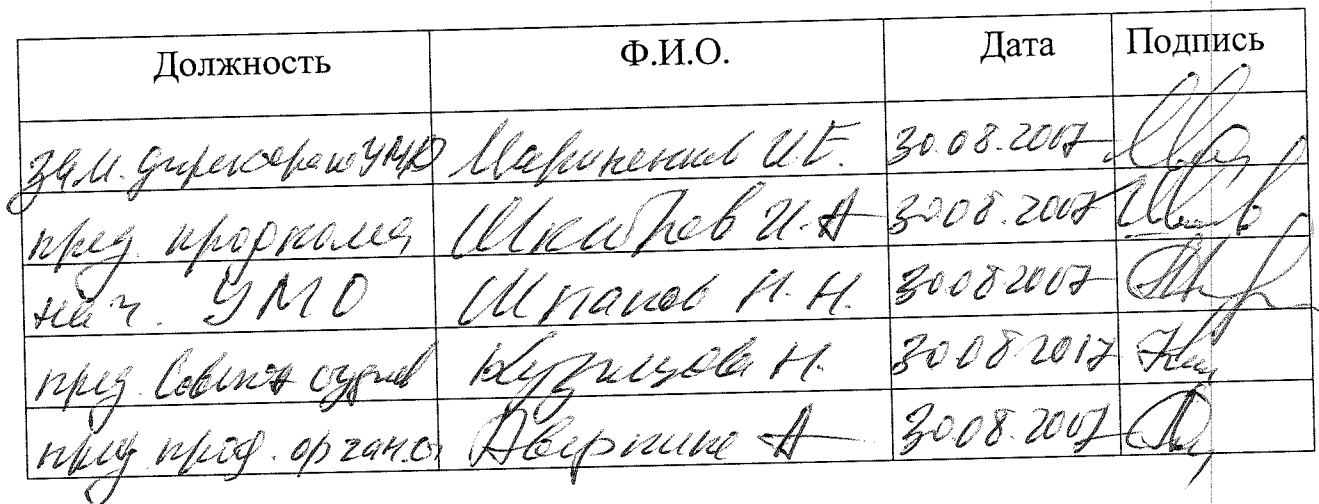 Должность Ф.И.О. Дата Подпись
зам. директора по УМР И.Е. 30.08.2007
пред. профкома Шкабров И.А 30.08.2007
нач. УМО Шпаков Н.Н. 30.08.2007
пред. Совета студ Кузнецова Н. 30.08.2017
пред проф. орган. Аверкина А 30.08.2007